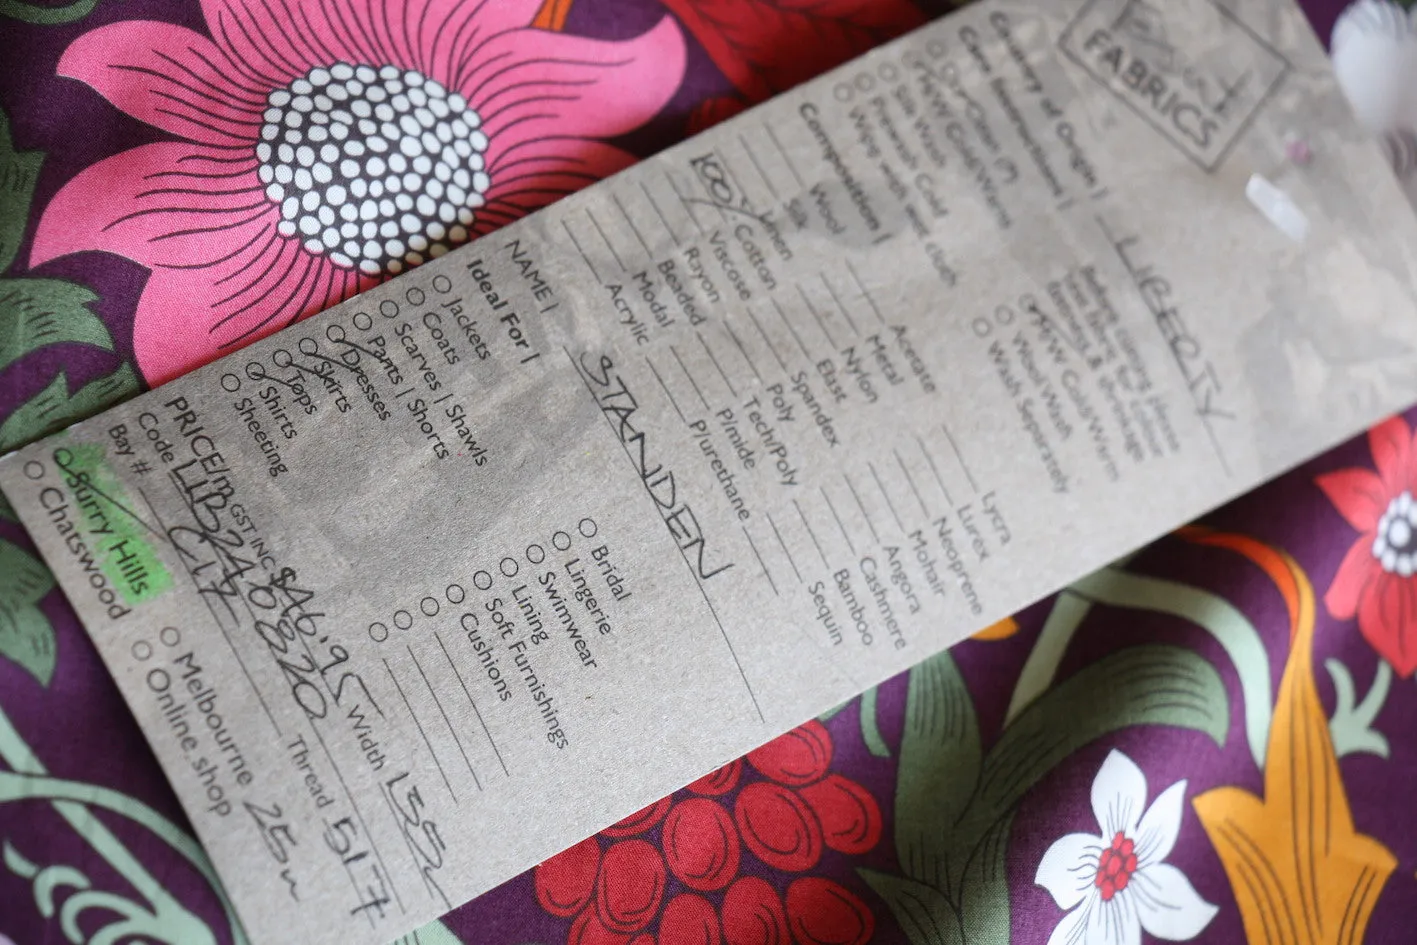 FABRICS
Country of Origin | LIBERTY
Care Instructions |
Dry Clean (P) Before cutting please
H/W Cold/Warm test fabric for colour
Silk Wash fastness & shrinkage
Prewash Cold M/W Cold/Warm
Wipe with wet cloth Wool Wash
Wash Separately
Composition |
Wool Acetate Lycra
Silk Metal Lurex
Linen Nylon Neoprene
100% Cotton Elast Mohair
Viscose Spandex Angora
Rayon Poly Cashmere
Beaded Tech/Poly Bamboo
Modal P/imide Sequin
Acrylic P/urethane
NAME | STANDEN
Ideal For |
Jackets Bridal
Coats Lingerie
Scarves | Shawls Swimwear
Pants | Shorts Lining
Dresses Soft Furnishings
Skirts Cushions
Tops
Shirts
Sheeting
PRICE/m GST INC $46.95 Width 155
Code LIB246820 Thread 5177
Bay # C17
Surry Hills Melbourne 25m
Chatswood Online shop